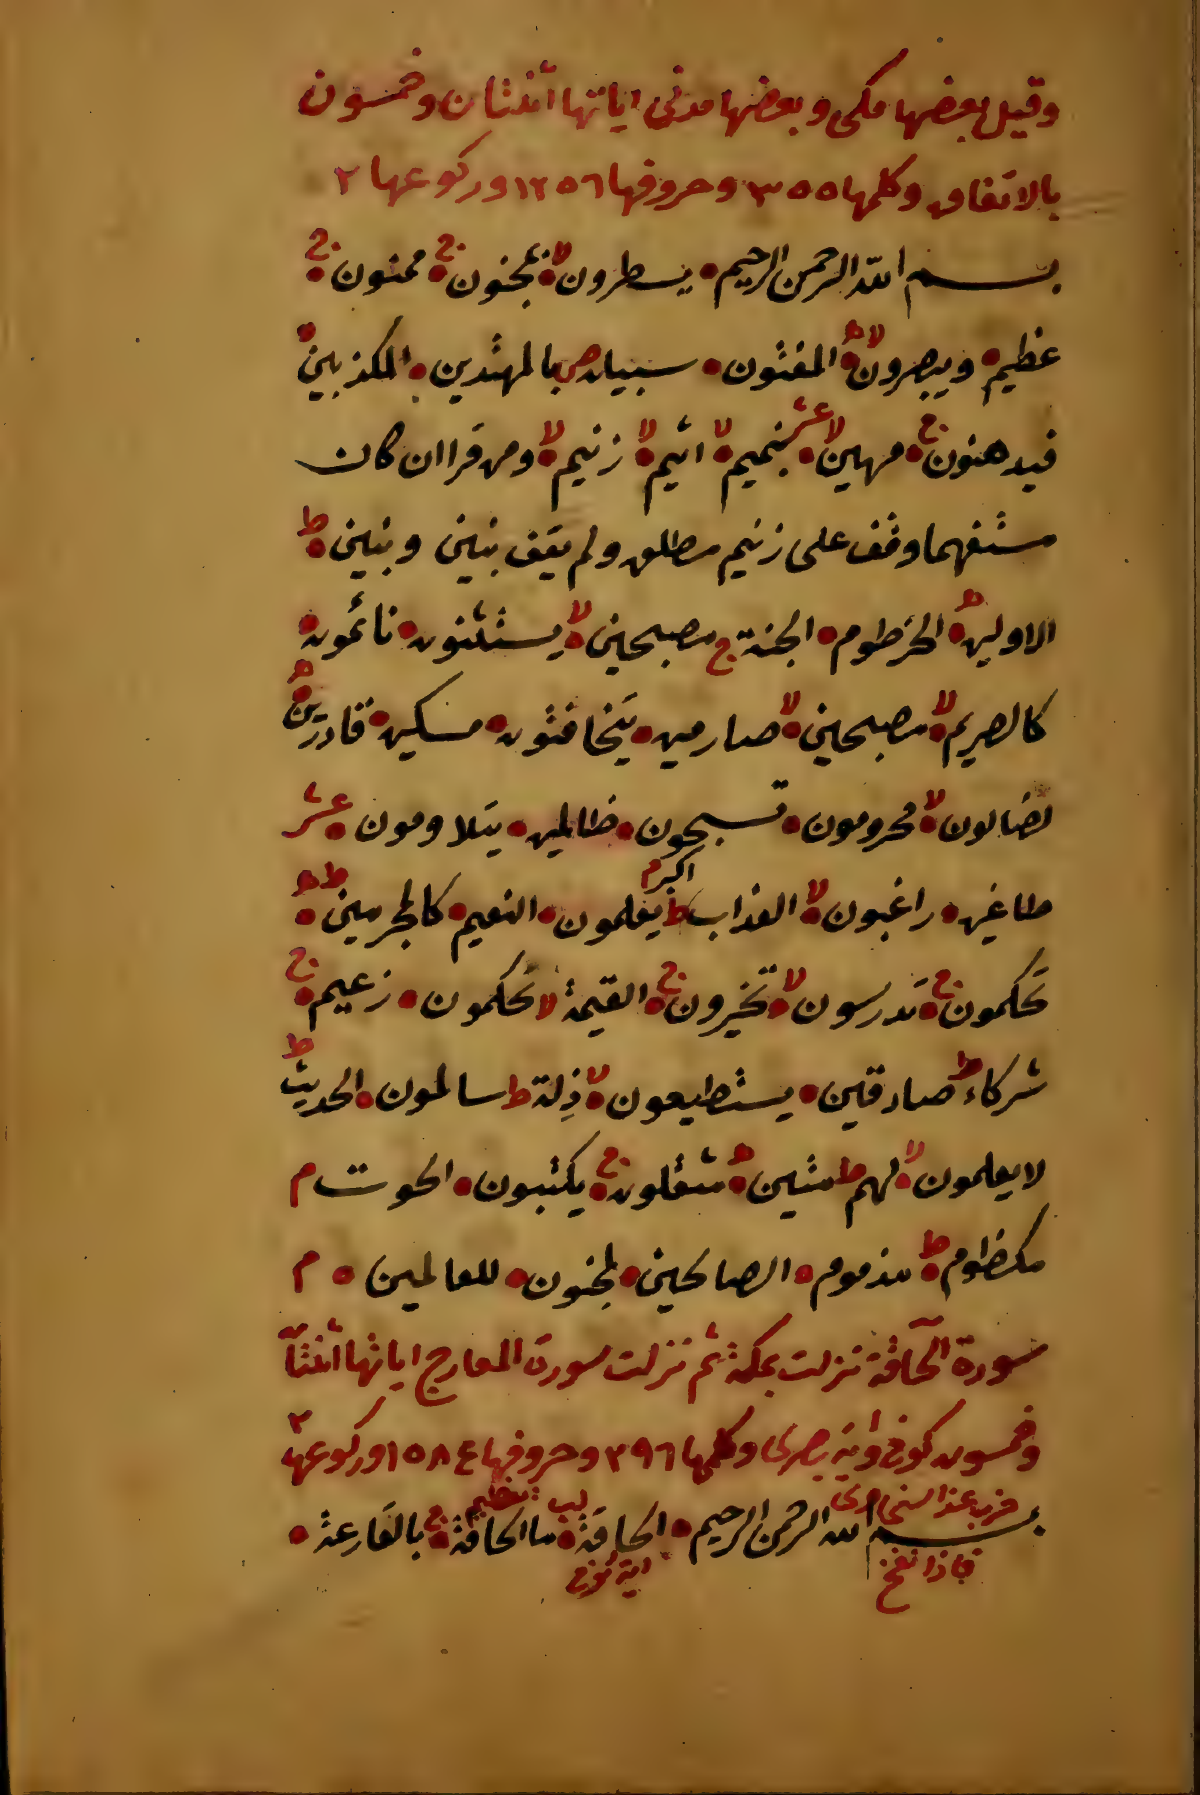 وقيل بعضها مكى وبعضها مدنى اياتها اثنتان وخمسون
بالاتفاق وكلمها ٣٥٥ وحروفها ١٢٥٦ وركوعها ٢
بسم الله الرحمن الرحيم • يسطرون • لا بمجنون • ج ممنون • ج
عظيم • ويبصرون • لا المفتون • سبيله ص بالمهتدين • المكذبين •
فيدهنون • ج مهين • لا عشر بنميم • لا اثيم • لا زنيم • لا ومن قرا ان كان
مستفهما وقف على زنيم مطلق ولم يقف بنين وبنين • ط
الاولين • ط الخرطوم • الجنة ج مصبحين • لا يستثنون • نائمون •
كالصريم • لا مصبحين • لا صارمين • يتخافتون • مسكين • قادرين •
لضالون • لا محرومون • تسبحون • ظالمين • يتلاومون • عشر
طاغين • راغبون • لا العذاب ط اكبر م يعلمون • النعيم • كالمجرمين • ط
تحكمون • ج تدرسون • لا تخيرون • ج القيمة لا تحكمون • زعيم • ج
شركاء ط صادقين • يستطيعون • لا ذلة ط سالمون • الحديث ط
لا يعلمون • لا لهم ط متين • مثقلون • ج يكتبون • الحوت م
مكظوم • ط مذموم • الصالحين • لمجنون • للعالمين • م
سورة الحاقة نزلت بمكة ثم نزلت سورة المعارج اياتها اثنتا
وخمسون كوفى وكلمها ٢٩٦ وحروفها ١٥٨٤ وركوعها ٢
بسم الله الرحمن الرحيم • الحاقة • ما الحاقة • ج بالقارعة •
فاذا نفخ